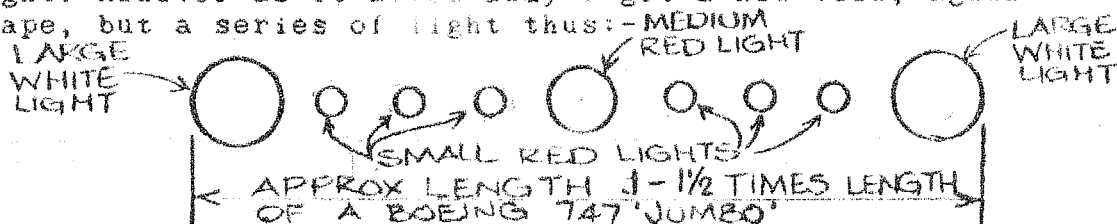 ape, but a series of light thus:-
MEDIUM
RED LIGHT
LARGE
WHITE
LIGHT
LARGE
WHITE
LIGHT
SMALL RED LIGHTS
APPROX LENGTH 1-1½ TIMES LENGTH
OF A BOEING 747 'JUMBO'